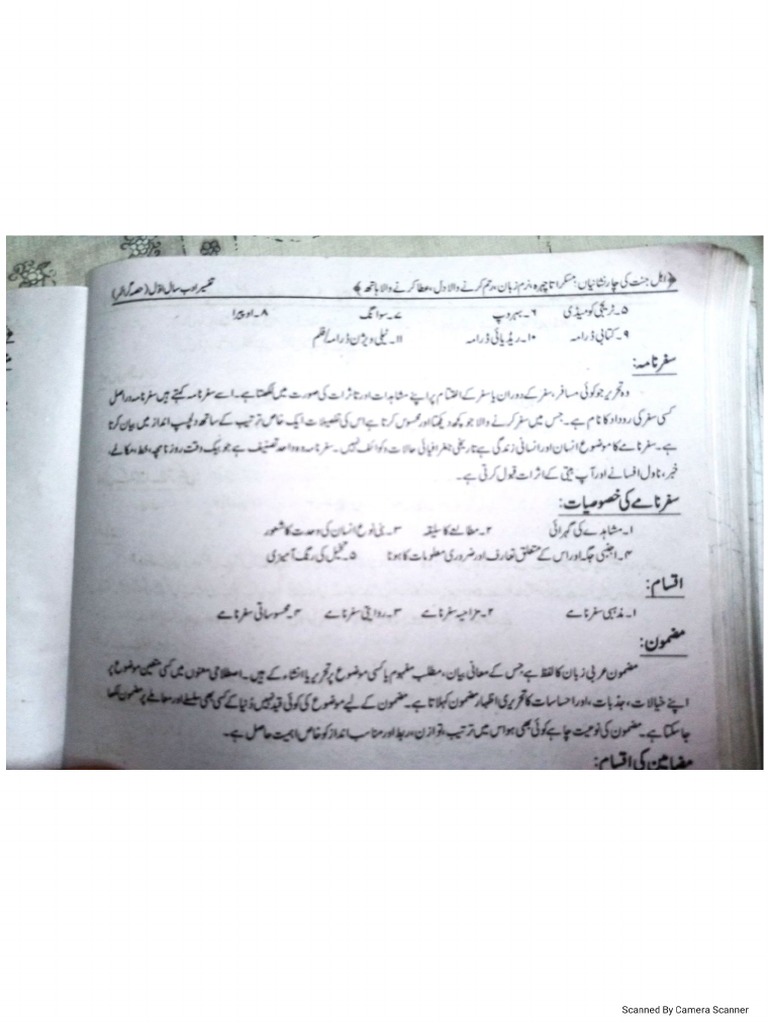 ﴿ اہل جنت کی چار نشانیاں: مسکراتا چہرہ، نرم زبان، رحم کرنے والا دل، عطا کرنے والا ہاتھ ﴾ تفسیر ادب سال اوّل (حصہ گرائمر)
۵۔ ٹریجی کومیڈی ۶۔ بہروپ ۷۔ سوانگ ۸۔ اوپیرا
۹۔ کتابی ڈرامہ ۱۰۔ ریڈیائی ڈرامہ ۱۱۔ ٹیلی ویژن ڈرامہ/فلم
سفرنامہ:
وہ تحریر جو کوئی مسافر، سفر کے دوران یا سفر کے اختتام پر اپنے مشاہدات اور تاثرات کی صورت میں لکھتا ہے۔ اسے سفرنامہ کہتے ہیں سفرنامہ دراصل
کسی سفر کی روداد کا نام ہے۔ جس میں سفر کرنے والا جو کچھ دیکھتا اور محسوس کرتا ہے اس کی تفصیلات ایک خاص ترتیب کے ساتھ دلچسپ انداز میں بیان کرتا
ہے۔ سفرنامے کا موضوع انسان اور انسانی زندگی ہے تاریخی جغرافیائی حالات و کوائف نہیں۔ سفرنامہ وہ واحد تصنیف ہے جو بیک وقت روزنامچہ، خط، مکالمے،
خبر، ناول افسانے اور آپ بیتی کے اثرات قبول کرتی ہے۔
سفرنامے کی خصوصیات:
۱۔ مشاہدے کی گہرائی ۲۔ مطالعے کا سلیقہ ۳۔ بنی نوع انسان کی وحدت کا شعور
۴۔ اجنبی جگہ اور اس کے متعلق تعارف اور ضروری معلومات کا ہونا ۵۔ تخیل کی رنگ آمیزی
اقسام:
۱۔ مذہبی سفرنامے ۲۔ مزاحیہ سفرنامے ۳۔ روایتی سفرنامے ۴۔ محسوساتی سفرنامے
مضمون:
مضمون عربی زبان کا لفظ ہے جس کے معانی بیان، مطلب مفہوم یا کسی موضوع پر تحریر یا انشاء کے ہیں۔ اصطلاحی معنوں میں کسی متعین موضوع پر
اپنے خیالات، جذبات، اور احساسات کا تحریری اظہار مضمون کہلاتا ہے۔ مضمون کے لیے موضوع کی کوئی قید نہیں دُنیا کے کسی بھی سلسلے اور معاملے پر مضمون لکھا
جا سکتا ہے۔ مضمون کی نوعیت چاہے کوئی بھی ہو اس میں ترتیب، توازن، ربط اور مناسب انداز کو خاص اہمیت حاصل ہے۔
مضامین کی اقسام:
Scanned By Camera Scanner